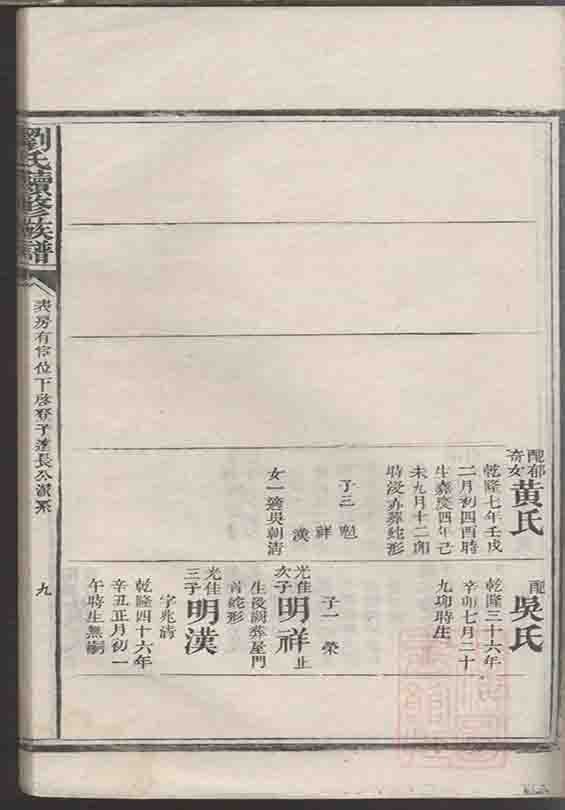 劉氏續修族譜
九
配郁
奇女
黃氏
乾隆七年壬戌
二月初四酉時
生嘉慶四年己
未九月十二卯
時歿亦葬蛇形
子三 魁
祥
漢
女一適吳朝清
配
吳氏
乾隆三十六年
辛卯七月二十
九卯時生
子一 榮
光佳
次子
明祥
止
生歿闕葬屋門
首蛇形
光佳
三子
明漢
字兆清
乾隆四十六年
辛丑正月初一
午時生無嗣